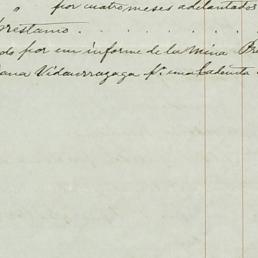 " por cuatro meses adelantados
restamo . . . . . . . .
do por em informe de la Mina
ana Vidaurrazaga pr. una